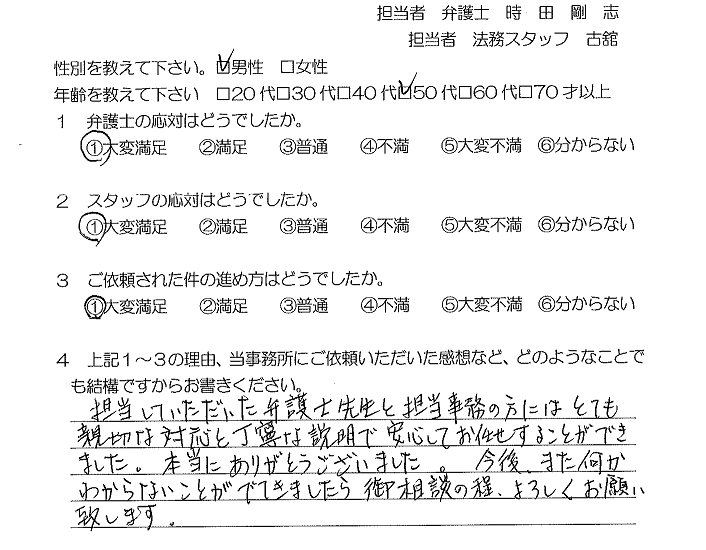 担当者 弁護士 時 田 剛 志
担当者 法務スタッフ 古舘
性別を教えて下さい。☑男性 □女性
年齢を教えて下さい □20代□30代□40代☑50代□60代□70才以上
1 弁護士の応対はどうでしたか。
①大変満足 ②満足 ③普通 ④不満 ⑤大変不満 ⑥分からない
2 スタッフの応対はどうでしたか。
①大変満足 ②満足 ③普通 ④不満 ⑤大変不満 ⑥分からない
3 ご依頼された件の進め方はどうでしたか。
①大変満足 ②満足 ③普通 ④不満 ⑤大変不満 ⑥分からない
4 上記1～3の理由、当事務所にご依頼いただいた感想など、どのようなことで
も結構ですからお書きください。
担当していただいた弁護士先生と担当事務の方にはとても
親切な対応と丁寧な説明で安心してお任せすることができ
ました。本当にありがとうございました。今後、また何か
わからないことがでてきましたら御相談の程、よろしくお願い
致します。